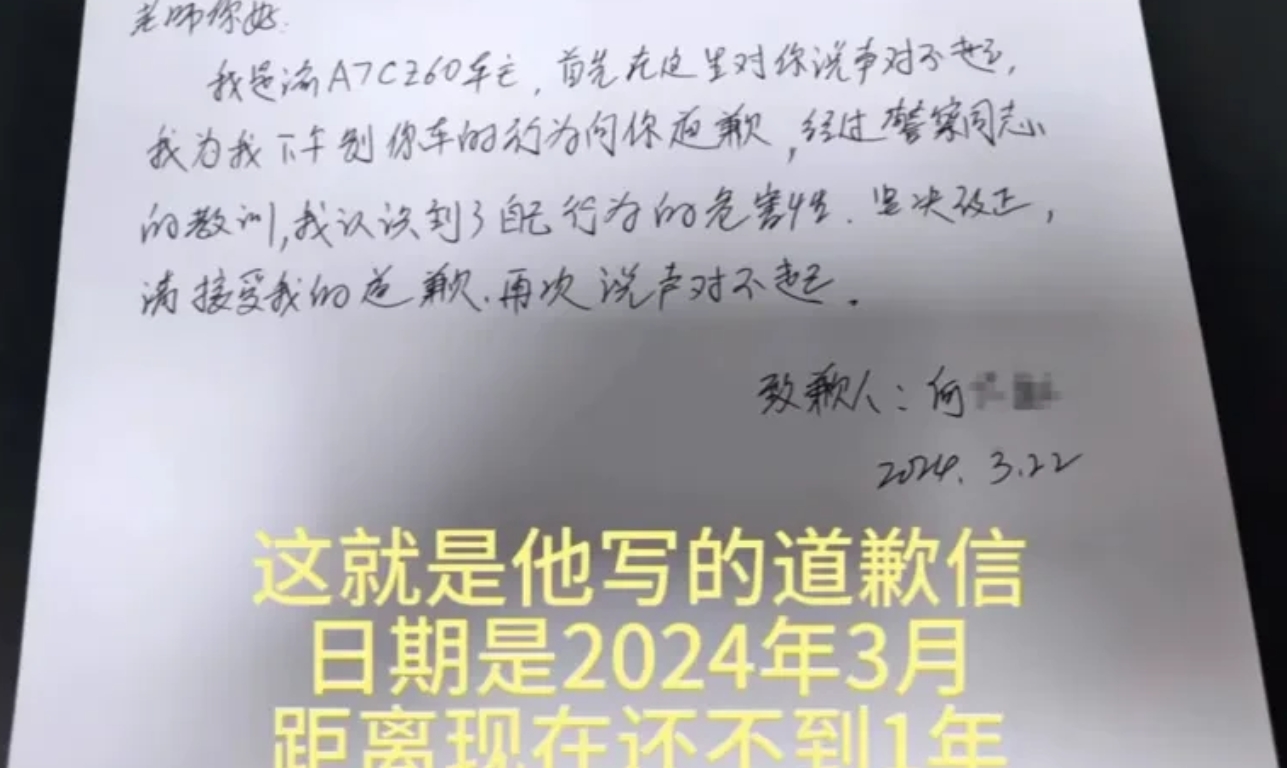 老师你好.
我是渝A7CZ60车主，首先在这里对你说声对不起，
我为我下午别你车的行为向你道歉，经过警察同志
的教训，我认识到了自己行为的危害性.坚决改正，
请接受我的道歉.再次说声对不起。
致歉人：何
2024.3.22
这就是他写的道歉信
日期是2024年3月
距离现在还不到1年